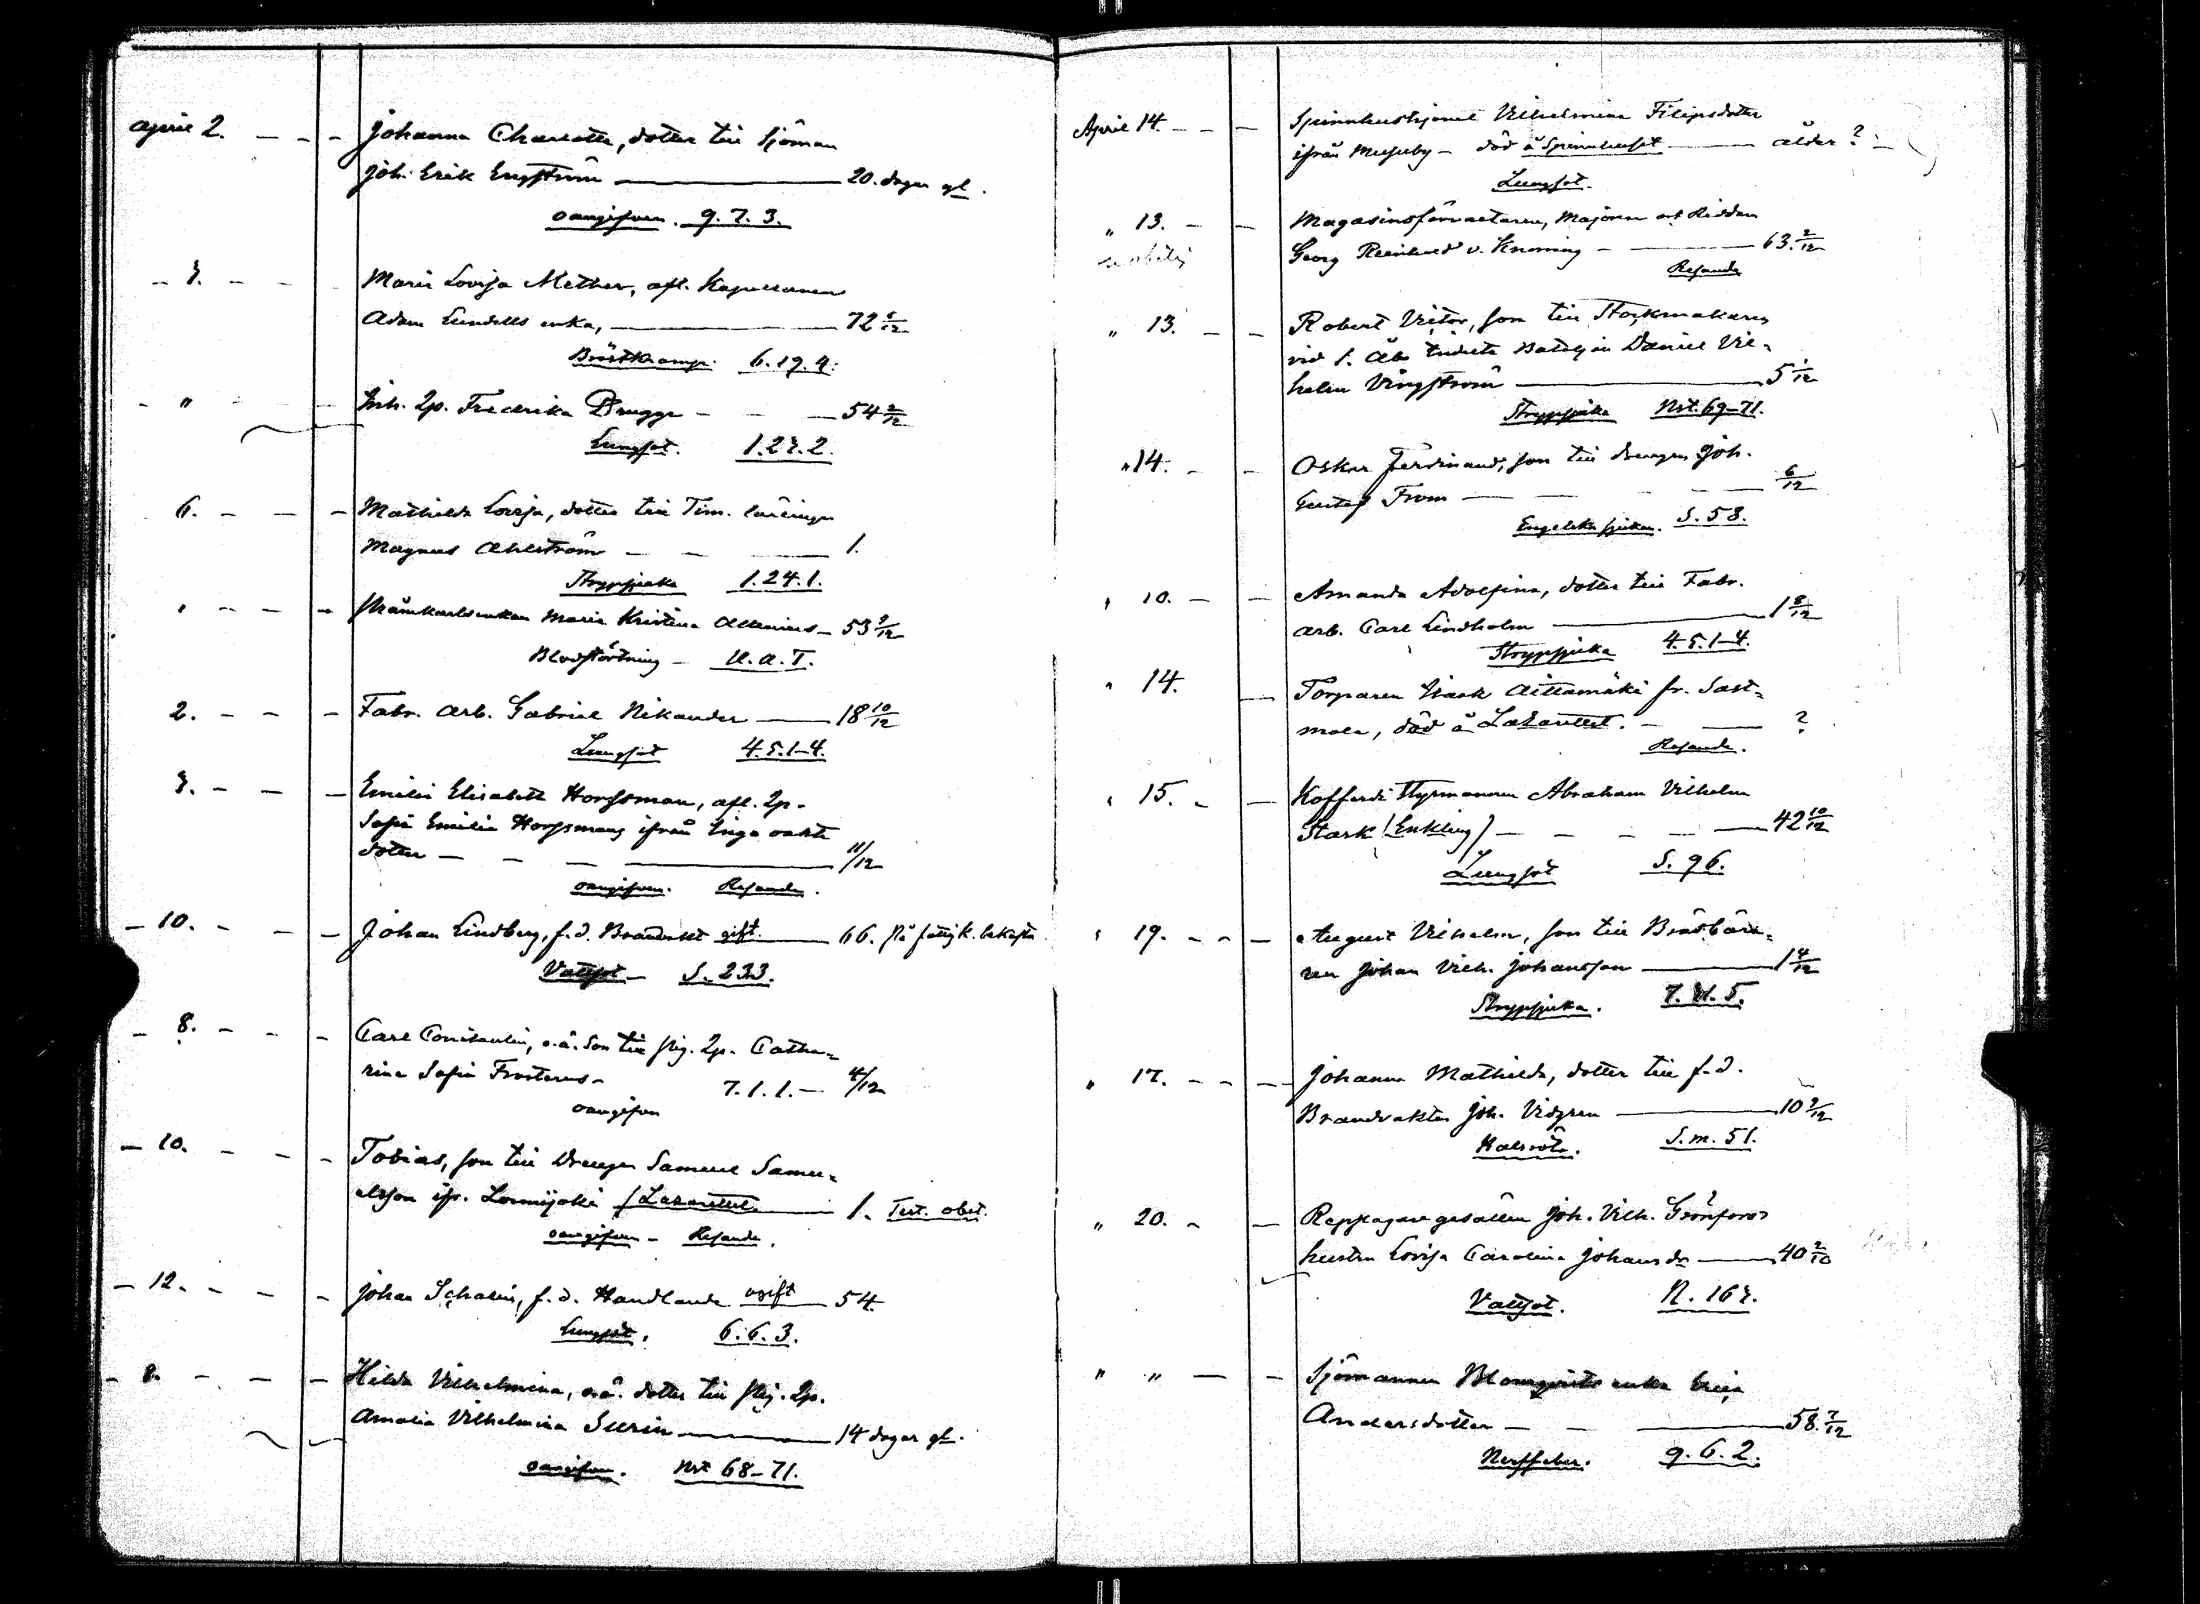 April 2. Johanna Charlotta, dotter till Sjöman
Joh. Erik Engström 20. dagar gl.
oangifven. 9. 7. 3.
3. Maria Lovisa Mether, afl. Kapellanen
Adam Lundells enka, 72
Bröstkramp. 6. 19. 4.
" Inh. Qp. Fredrika Brugge 54
Lungsot. 1. 23. 2.
6. Mathilda Lovisa, dotter till Tim. lärlingen
Magnus Ahlström 1.
Strypsjuka 1. 24. 1.
" Maria Kristina Allenius 53 9/12
Blodstörtning U. a. T.
2. Fabr. arb. Gabriel Nikander 18 10/12
Lungsot 4. 5. 1-4.
3. Emilia Elisabeth Horssman, afl. Qp.
Sofia Emilia Horssmans ifrån Inga oäkta
dotter 11/12
oangifven. Resande.
10. Johan Lindberg, f.d. Brandvakt gift. 66.
Vattsot S. 233.
8. Carl Constantin, o.ä. son till Qp. Catha-
rina Sofia Frosterus 7. 1. 1. 4/12
oangifven
10. Tobias, son till Drengen Samuel Samu-
elsson ifr. Loimijoki /Lazarettet 1. Test. obet.
oangifven Resande.
12. Johan Schalin, f.d. Handlande ogift 54
Lungsot. 6. 6. 3.
8. Hilda Vilhelmina, o.ä. dotter till Qp.
Amalia Vilhelmina Surin 14 dagar gl.
oangifven. Nst 68-71.
April 14. Spinnhushjonet Vilhelmina Filipsdotter
ifrån död å Spinnhuset ålder ?
Lungsot.
" 13. Magasinsförvaltaren, Majoren och Riddaren
Georg Reinhold v. Knorring 63. 2/12
Resande
" 13. Robert Victor, son till Stockmakaren
vid 1. Åbo Indelta Bataljon Daniel Vil-
helm Vingström 5 1/12
Strypsjuka Nst. 69-71.
" 14. Oskar Ferdinand, son till drengen Joh.
Gustaf From 6/12
Engelska sjukan. S. 58.
" 10. Amanda Adolfina, dotter till Fabr.
arb. Carl Lindholm 1 8/12
Strypsjuka 4. 5. 1-4.
" 14. Torparen Isaak Aittamäki fr. Sast-
mola, död å Lazarettet. ?
Resande.
" 15. Kofferdi Styrmannen Abraham Vilhelm
Stark (Enkling) 42 10/12
Lungsot S. 96.
" 19. August Vilhelm, son till Brädbära-
ren Johan Vilh. Johansson 1 4/12
Strypsjuka. 7. 11. 5.
" 17. Johanna Mathilda, dotter till f.d.
Brandvakten Joh. Vidgren 10 9/12
Halsröta. S. m. 51.
" 20. Repslagaregesällen Joh. Vilh. Grönfors
hustru Lovisa Carolina Johansdr 40 2/12
Vattsot. N. 163.
" " Sjömannen Blomqvists enka
Andersdotter 58. 7/12
Nervfeber. 9. 6. 2.